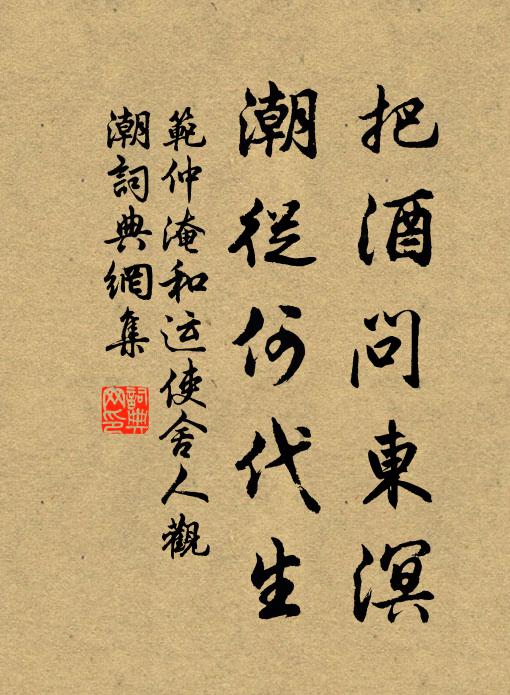 把酒問東溟
潮從何代生
範仲淹和运使舍人觀
潮詞典網集
詞典
网印